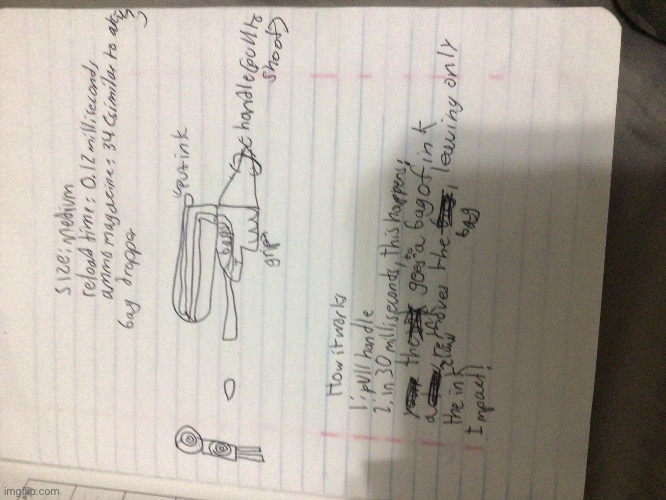 Size: Medium
reload time: 0.12 milliseconds
ammo magazine: 34 (similar to
bag droppa
put ink
handle (pull to
shoot)
grip
How it works
1: pull handle
2. in 30 mlliseconds, this happens:
the goes to a bag of ink
a claw removes the bag, leaving only
the ink
Impact!
imgflip.com